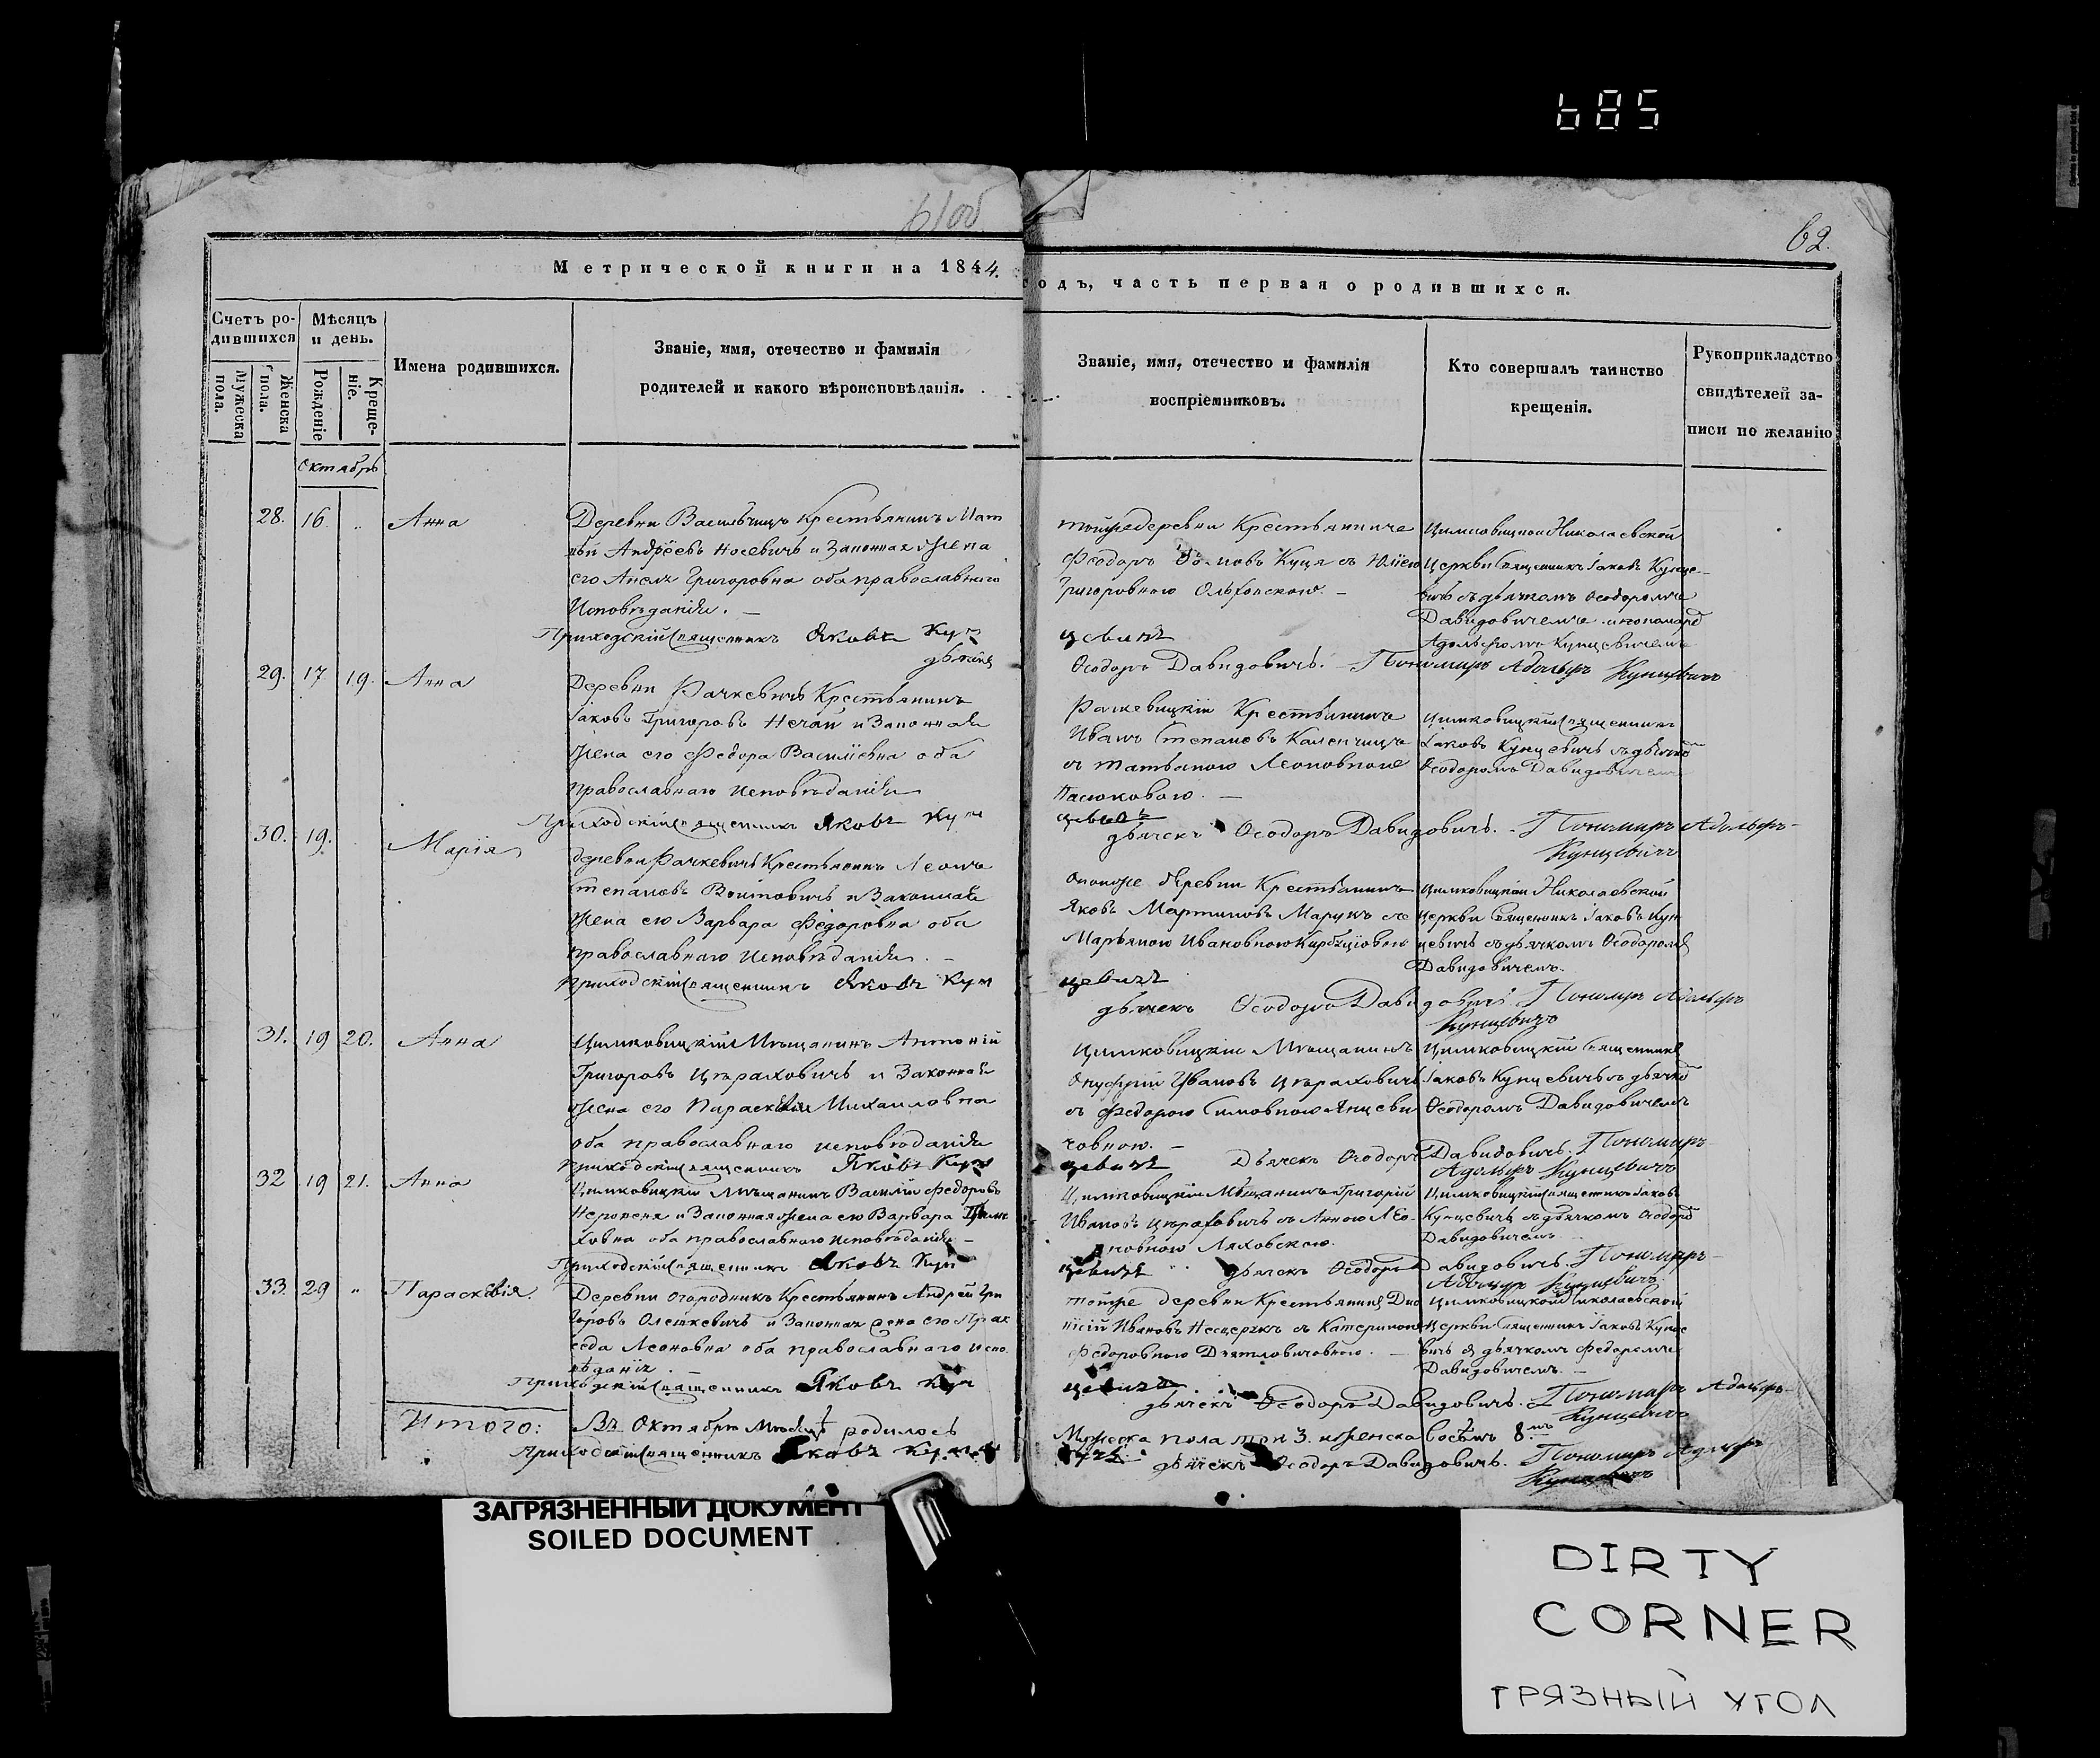 685
61об
62.
Метрической книги на 1844.
годъ, часть первая о родившихся.
Счетъ родившихся
Мужеска пола.
Женска пола.
Мѣсяцъ и день.
Рожденіе
Крещеніе.
Имена родившихся.
Званіе, имя, отечество и фамилія
родителей и какого вѣроисповѣданія.
Званіе, имя, отечество и фамилія
воспріемниковъ.
Кто совершалъ таинство
крещенія.
Рукоприкладство
свидѣтелей за-
писи по желанію
Октябрь
28. 16. „ Анна
Деревни Василѣчицъ Крестьянинъ Мат
вѣй Андреевъ Носевичъ и Законная Жена
его Григоровна оба православнаго
Исповѣданія. —
Приходскій Священникъ Яковъ Кун
цевичъ
тойже деревни Крестьянинъ
Феодоръ Куця съ
Григоровною
Николаевской
Церкви Священникъ Іаковъ Кунце-
вичъ съ дьячкомъ Ѳеодоромъ
Давидовичемъ и пономаремъ
Адольфомъ Кунцевичемъ
дьячекъ
Ѳеодоръ Давидовичъ. Пономарь Адольфъ Кунцевичъ
29. 17 19. Анна
Деревни Рачкевичъ Крестьянинъ
Іаковъ Григоровъ Нечай и Законная
Жена его Федора Васильевна оба
православнаго исповѣданія
Приходскій Священникъ Яковъ Кун
цевичъ
Рачкевицкій Крестьянинъ
Иванъ Степановъ Каленчицъ
съ Татьяною Леоновною
Пасюковою. —
Цимковицкій Священникъ
Іаковъ Кунцевичъ съ дьячкомъ
Ѳеодоромъ Давидовичемъ
дьячекъ Ѳеодоръ Давидовичъ. Пономарь Адольфъ
Кунцевичъ
30. 19. Марія
деревни Рачкевичъ Крестьянинъ Леонъ
Степановъ Войтовичъ и Законная
Жена его Варвара Федоровна оба
православнаго исповѣданія. —
Приходскій Священникъ Яковъ Кун
цевичъ
оноиже деревни Крестьянинъ
Яковъ Мартиновъ Марукъ съ
Марьяною Ивановною
Цимковицкой Николаевской
церкви Священникъ Іаковъ Кун
цевичъ съ дьячкомъ Ѳеодоромъ
Давидовичемъ.
дьячекъ Ѳеодоръ Давидовичъ. Пономарь Адольфъ
Кунцевичъ
31. 19 20. Анна
Цимковицкій Мѣщанинъ Антоній
Григоровъ Цѣраховичъ и Законная
Жена его Параскевія Михайловна
оба православнаго исповѣданія
Приходскій Священникъ Яковъ Кун
цевичъ
Цимковицкій Мѣщанинъ
Онуфрій Ивановъ Цѣраховичъ
съ Федорою Симовною Янцеви
човною. —
Цимковицкій Священникъ
Іаковъ Кунцевичъ съ дьячкомъ
Ѳеодоромъ Давидовичемъ
Дьячекъ Ѳеодоръ Давидовичъ. Пономарь
Адольфъ Кунцевичъ
32 19 21. Анна
Цимковицкій Мѣщанинъ Василій Федоровъ
и Законная Жена его Варвара
оба православнаго исповѣданія —
Приходскій Священникъ Яковъ Кун
цевичъ
Цимковицкій Мѣщанинъ Григорій
Ивановъ Цѣраховичъ съ Анною Лео-
новною Ляховскою.
Цимковицкій Священникъ Іаковъ
Кунцевичъ съ дьячкомъ Ѳеодоромъ
Давидовичемъ
дьячекъ Ѳеодоръ Давидовичъ. Пономарь
Адольфъ Кунцевичъ.
33. 29 „ Параскевія.
Деревни Огородникъ Крестьянинъ Андрей Гри
горовъ Олешкевичъ и Законная Жена его Прак
седа Леоновна оба православнаго испо
вѣданія.
Приходскій Священникъ Яковъ Кун
цевичъ
тойже деревни Крестьянинъ Дио
нисій Ивановъ съ Катериною
Федоровною
Цимковицкой Николаевской
Церкви Священникъ Іаковъ Кунце
вичъ съ дьячкомъ Федоромъ
Давидовичемъ. —
дьячекъ Ѳеодоръ Давидовичъ. Пономарь Адольфъ
Кунцевичъ
Итого: Въ Октябрѣ Мѣсяцѣ родилось
Мужеска пола три 3. женска восемъ 8мъ
Приходскій Священникъ Яковъ Кун
цевичъ
дьячекъ Ѳеодоръ Давидовичъ. Пономарь Адольфъ
Кунцевичъ
ЗАГРЯЗНЕННЫЙ ДОКУМЕНТ
SOILED DOCUMENT
DIRTY
CORNER
ГРЯЗНЫЙ УГОЛ